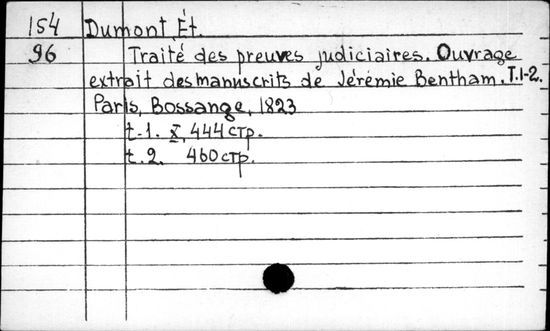 154 Dumont, Ét.
96 Traité des preuves judiciaires. Ouvrage
extrait des manuscrits de Jérémie Bentham. T.1-2.
Paris, Bossange, 1823
t.1. X, 444 стр.
t.2. 460 стр.